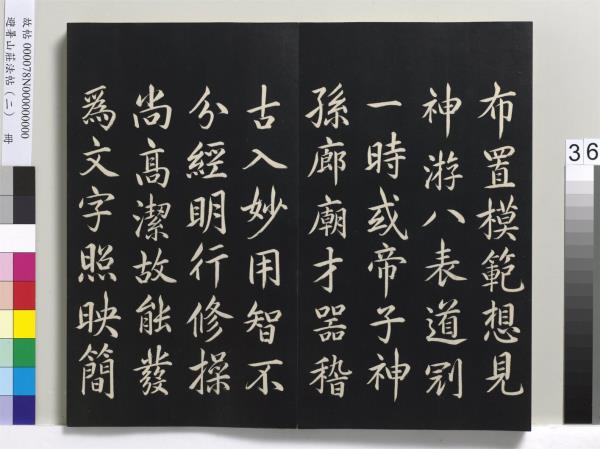 布置模範想見
神游八表道冠
一時或帝子神
孫廊廟才器稽
古入妙用智不
分經明行修操
尚高潔故能發
為文字照映簡
故帖 000078N000000000
避暑山莊法帖(二) 冊
36